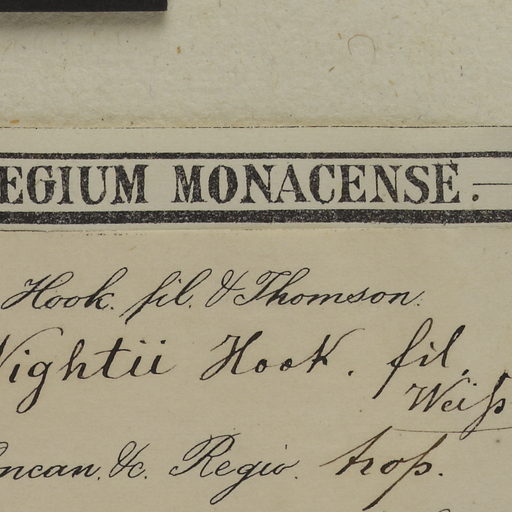 EGIUM MONACENSE.
Hook. fil. & Thomson.
Wightii Hook. fil.
Weiß
ncan. &c. Regio. trop.